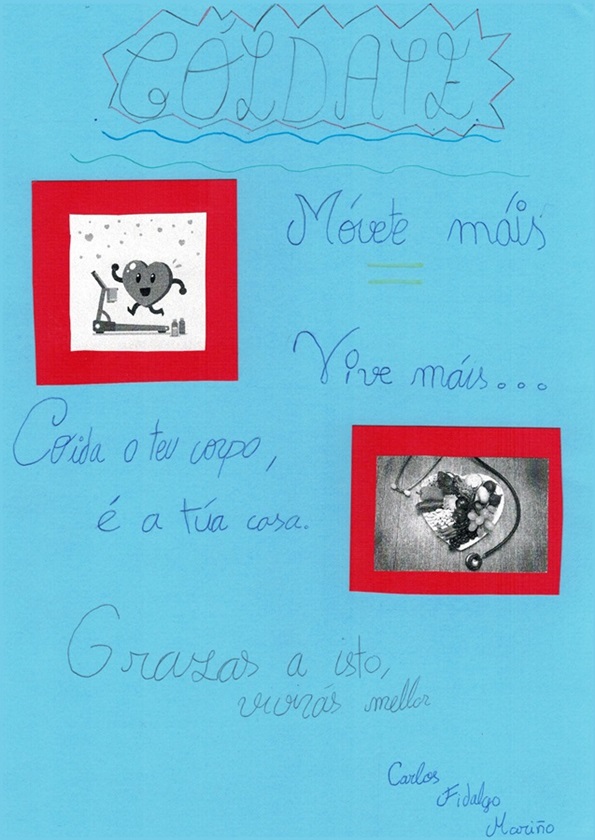 CÓIDATE
Móvete máis
=
Vive máis...
Coida o teu corpo,
é a túa casa.
Grazas a isto,
vivirás mellor
Carlos
Fidalgo
Mariño